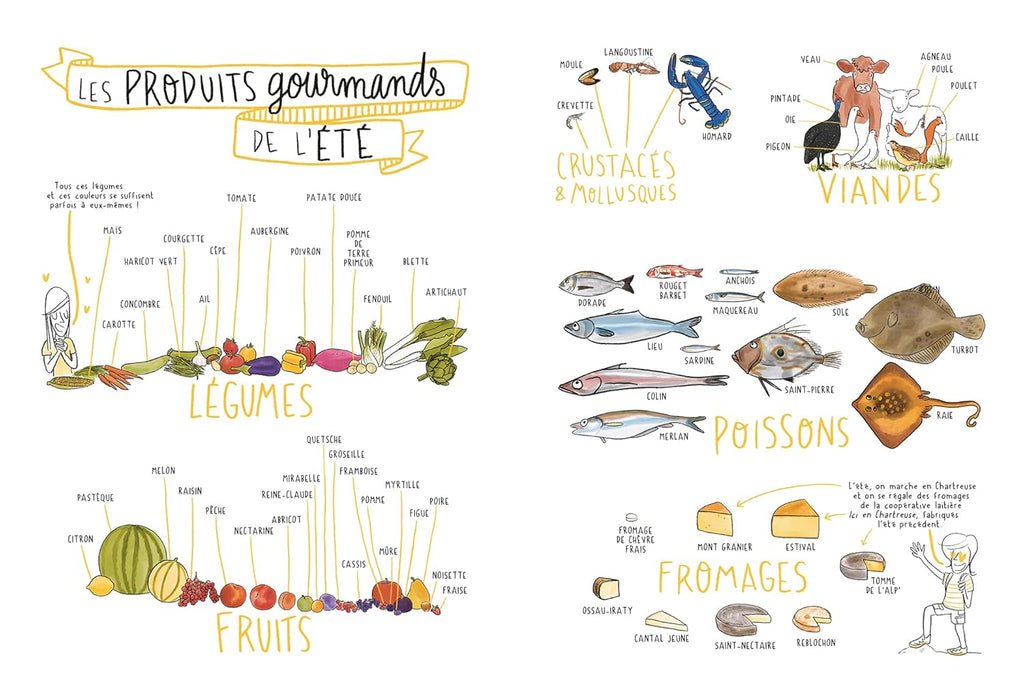 LES PRODUITS gourmands
DE L'ÉTÉ
Tous ces légumes
et ces couleurs se suffisent
parfois à eux-mêmes !
MAIS
CAROTTE
CONCOMBRE
HARICOT VERT
COURGETTE
AIL
CÈPE
TOMATE
AUBERGINE
POIVRON
PATATE DOUCE
POMME
DE
TERRE
PRIMEUR
FENOUIL
BLETTE
ARTICHAUT
LÉGUMES
CITRON
PASTÈQUE
MELON
RAISIN
PÊCHE
NECTARINE
ABRICOT
REINE-CLAUDE
MIRABELLE
QUETSCHE
GROSEILLE
CASSIS
FRAMBOISE
POMME
MÛRE
MYRTILLE
FIGUE
POIRE
NOISETTE
FRAISE
FRUITS
CREVETTE
MOULE
LANGOUSTINE
HOMARD
CRUSTACÉS
& MOLLUSQUES
VEAU
PINTADE
OIE
PIGEON
AGNEAU
POULE
POULET
CAILLE
VIANDES
DORADE
ROUGET
BARBET
ANCHOIS
MAQUEREAU
SOLE
TURBOT
LIEU
SARDINE
SAINT-PIERRE
COLIN
MERLAN
RAIE
POISSONS
L'été, on marche en Chartreuse
et on se régale des fromages
de la coopérative laitière
Ici en Chartreuse, fabriqués
l'été précédent.
FROMAGE
DE CHÈVRE
FRAIS
MONT GRANIER
ESTIVAL
TOMME
DE L'ALP'
FROMAGES
OSSAU-IRATY
CANTAL JEUNE
SAINT-NECTAIRE
REBLOCHON